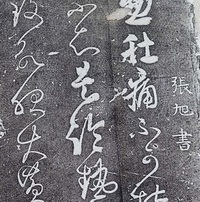 張旭書
忽肚痛不可堪
不知是冷熱
致欲服大黃